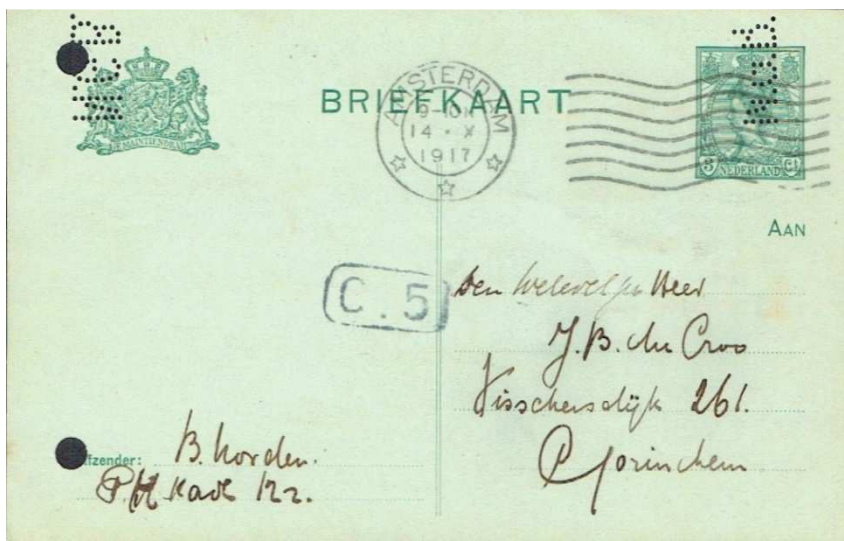 BRIEFKAART
AMSTERDAM
14 · X
1917
3 NEDERLAND Ct
AAN
C. 5
Den Heer
J. B. du Croo
Visschersdijk 261.
Gorinchem
fzender: B. Norden.
P. H Kade 122.